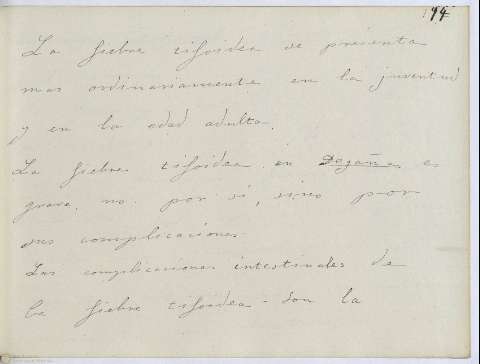 194
La fiebre tifoidea se presenta
mas ordinariamente en la juventud
y en la edad adulta.
La fiebre tifoidea en es
grave no por si, sino por
sus complicaciones.
Las complicaciones intestinales de
la fiebre tifoidea - son la